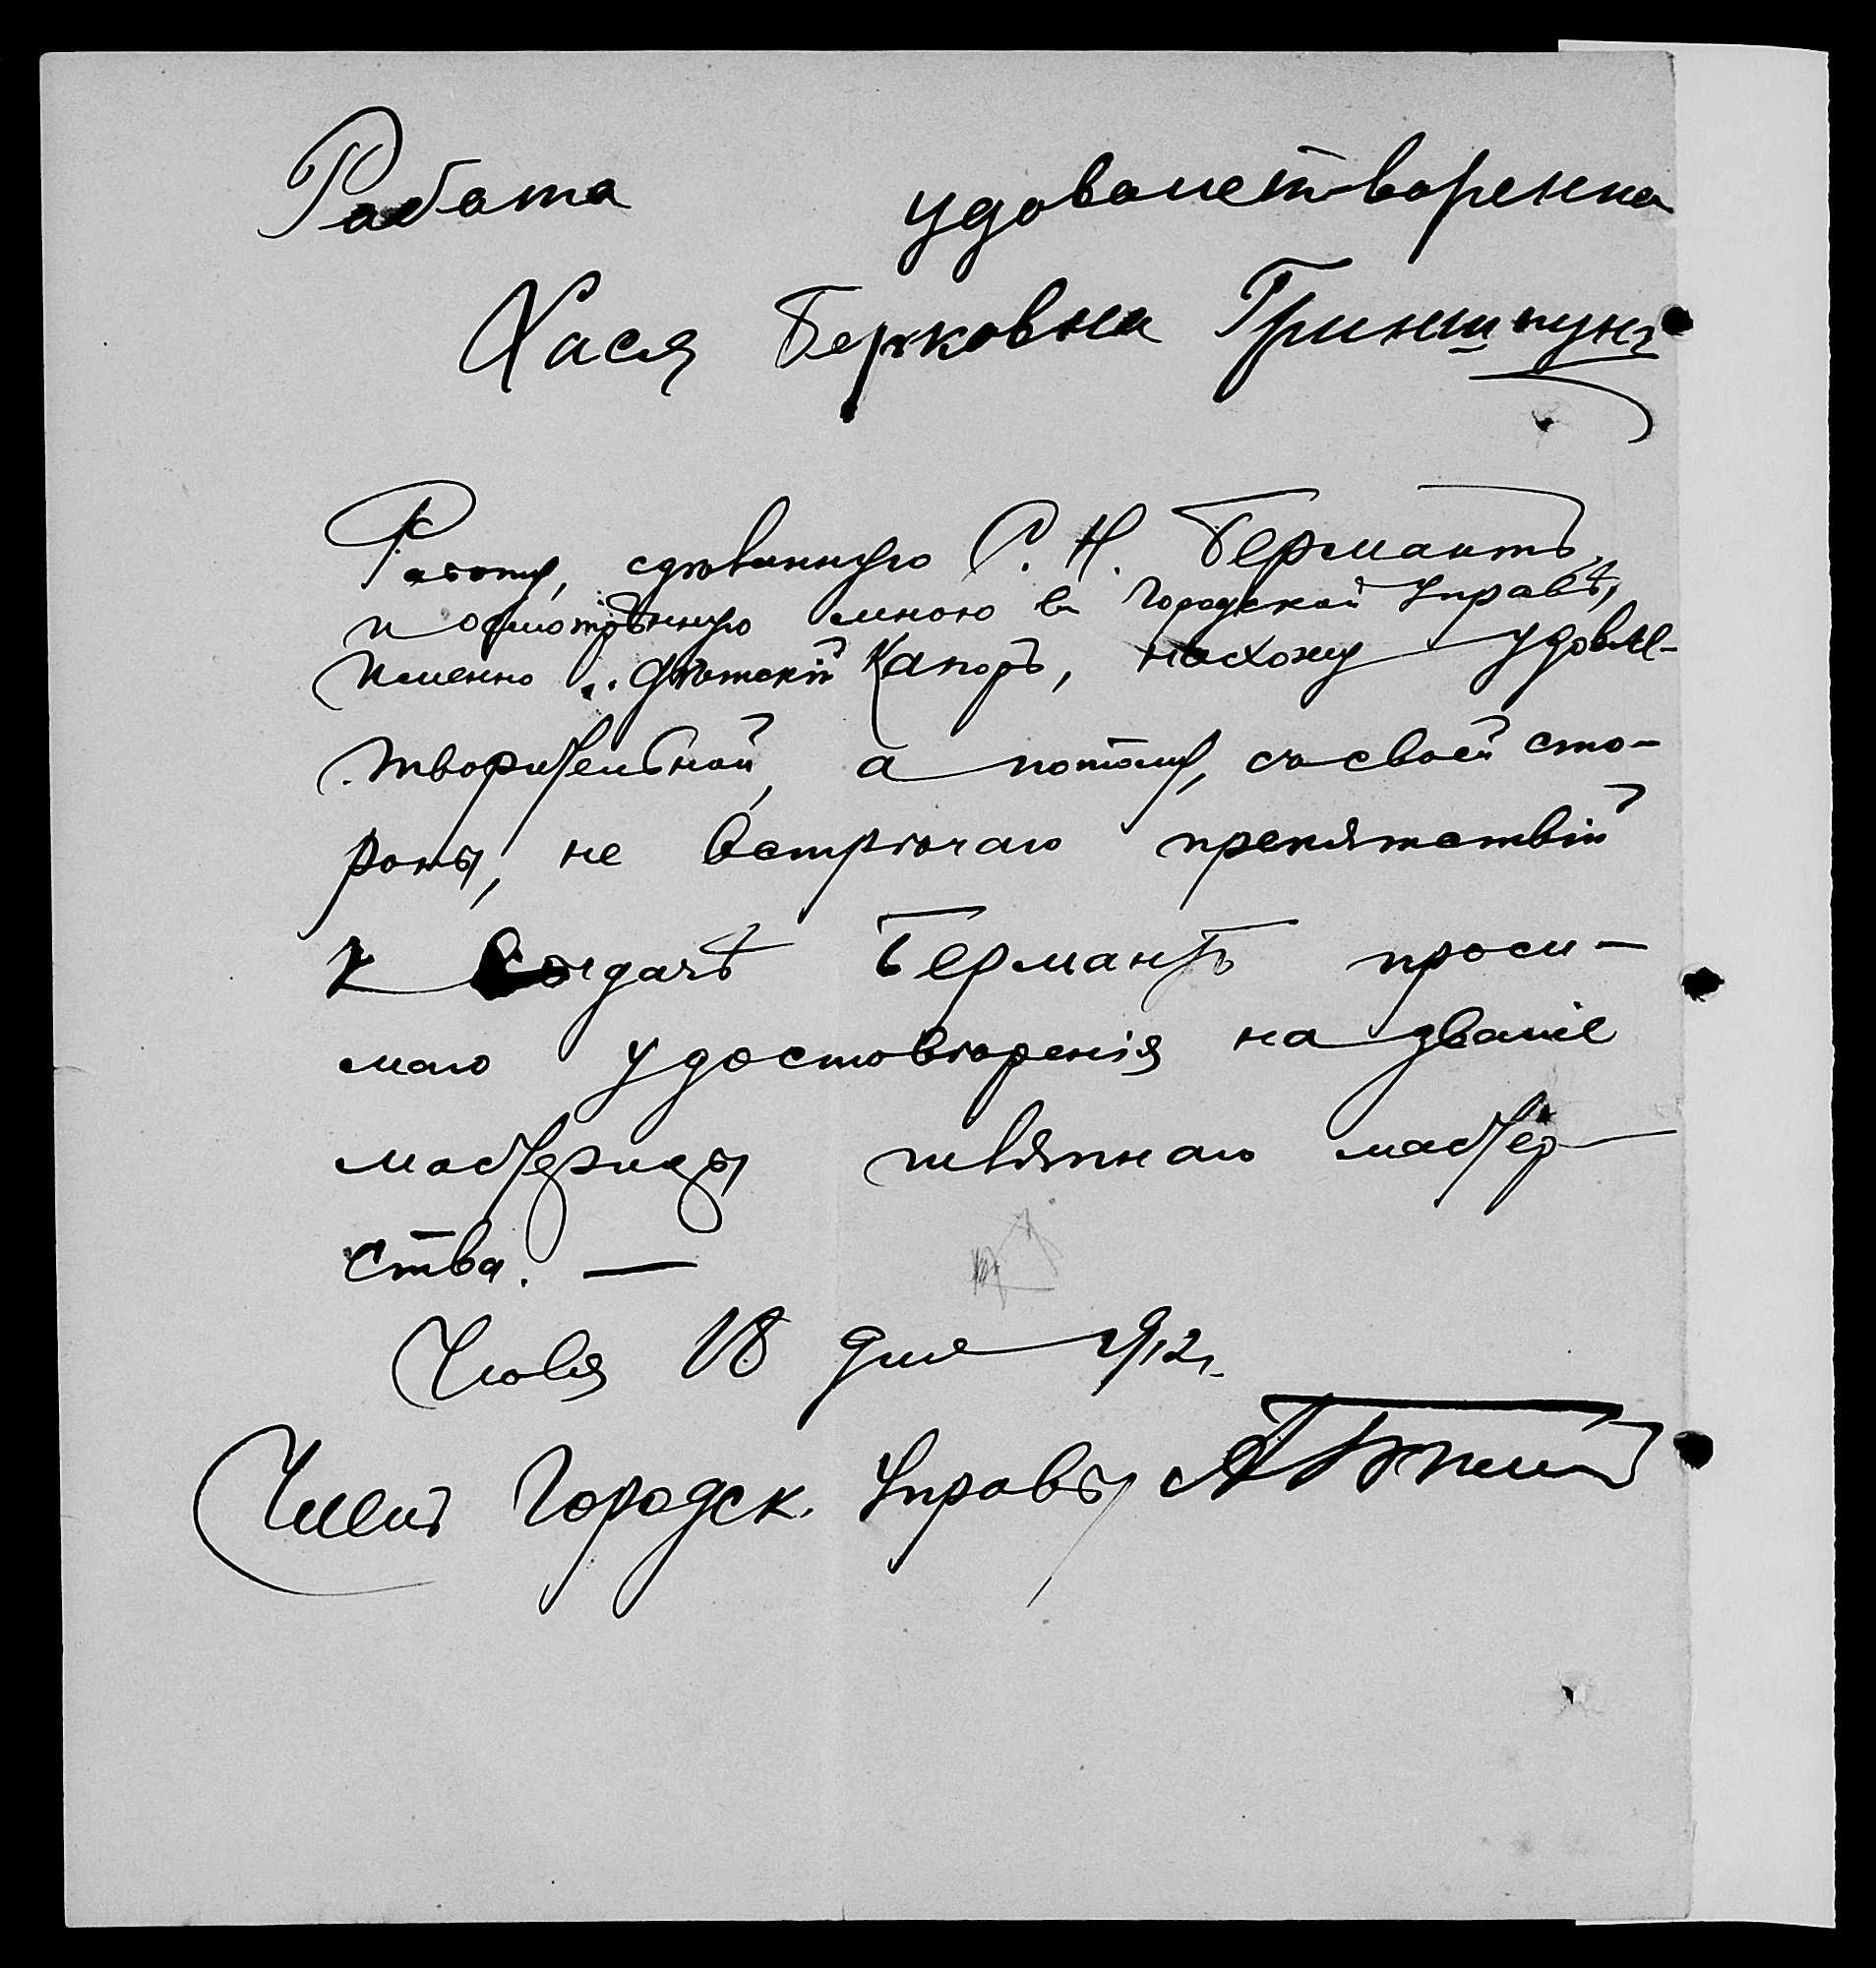 Работа удовалетворенна
Хася Берковна Гриншпунъ
Работу, сдѣланную С. Н. Бермантъ,
и осмотрѣнную мною въ Городской Управѣ,
именно "дѣтскій Капоръ, нахожу удовле-
творительной, а потому, съ своей сто-
роны, не встрѣчаю препятствій
къ выдачѣ Бермантъ проси-
маго удостовѣренія на званіе
мастерицы шляпнаго мастер-
ства. —
Іюля 18 дня 1912 г.
Членъ Городск. Управы